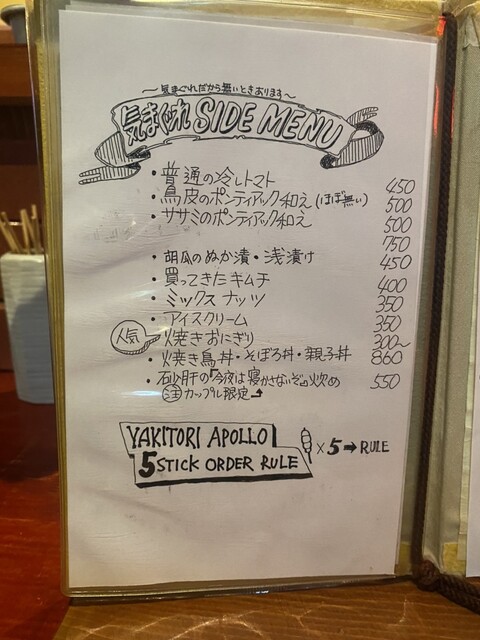 ～気まぐれだから無いときあります～
気まぐれ SIDE MENU
・普通の冷しトマト 450
・鳥皮のポンティアック和え(ほぼ無い) 500
・ササミのポンティアック和え 500
750
・胡瓜のぬか漬・浅漬け 450
・買ってきたキムチ 400
・ミックスナッツ 350
・アイスクリーム 350
人気 焼きおにぎり 300～
・焼き鳥丼・そぼろ丼・親子丼 860
・砂肝の「今夜は寝かさないぞ」炒め 550
注 カップル限定
YAKITORI APOLLO
5 STICK ORDER RULE
×5➡RULE